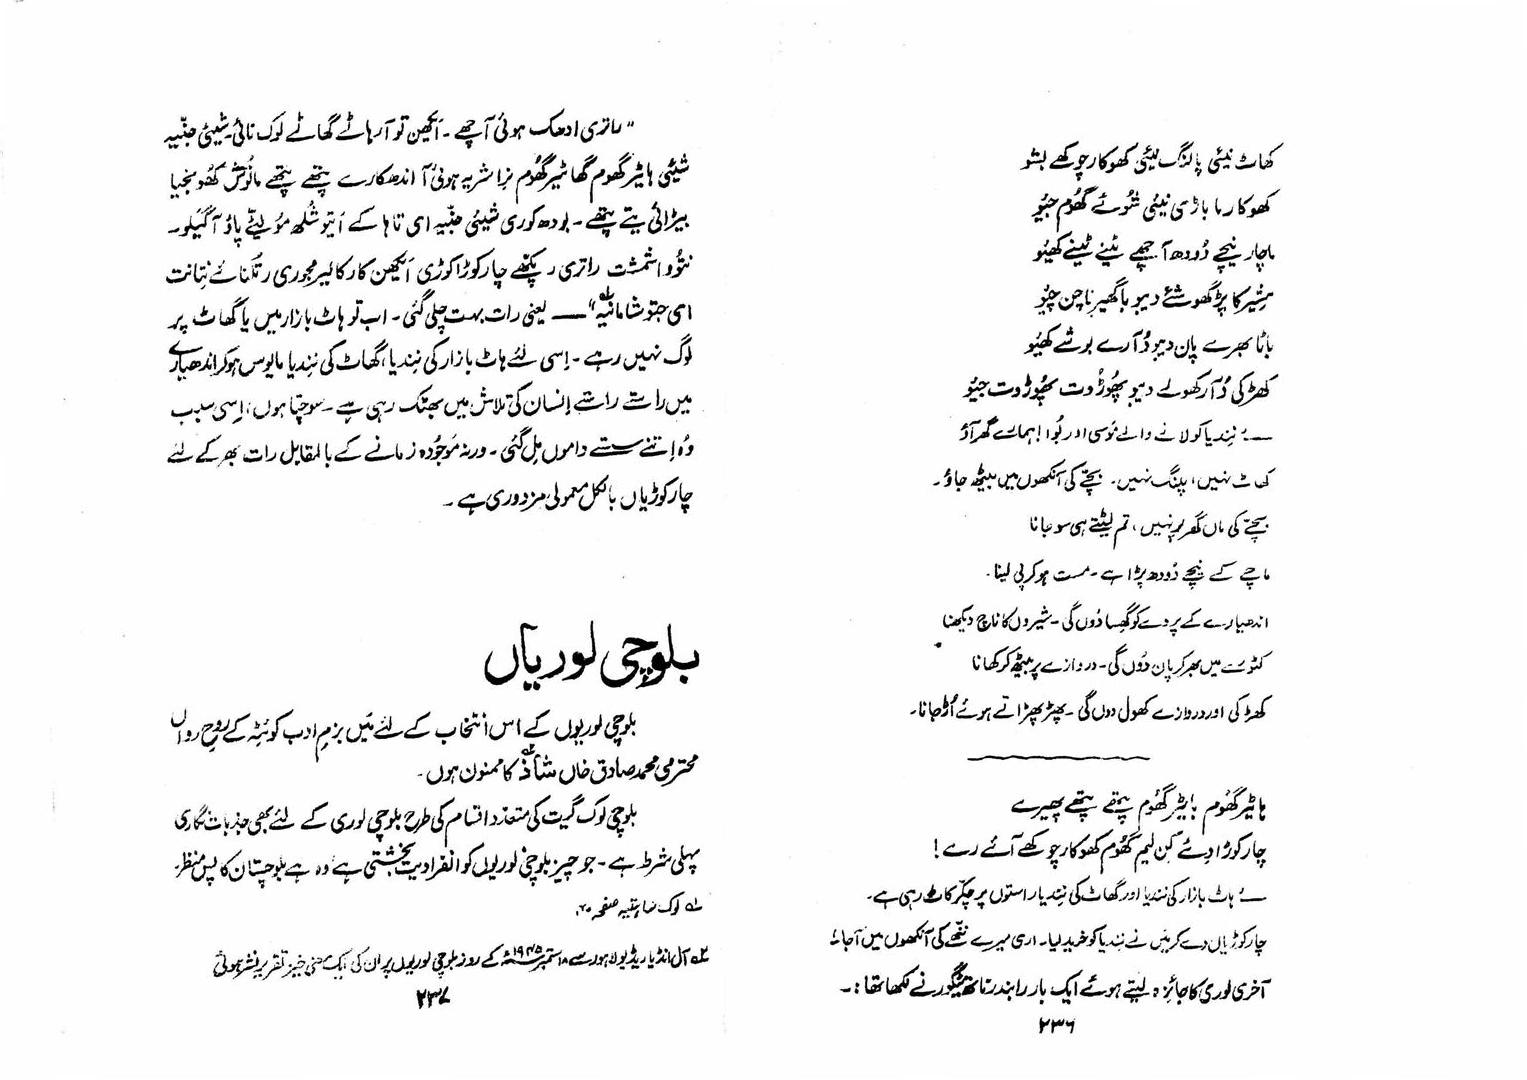 کھاٹ نیئی پالنگ لیئی کھوکار چوکھے بشو
کھوکار ما باڑی نیئی شوُئے گھُوم جیُو
ماچار نیچے دُودھ آچھے ٹینے ٹینے کھیُو
پان دیبو دُآرے بوشے کھیُو
کھڑکی دُآر کھولے دیبو پھُوڑُوت پھُوڑوت جیُو
—: نِندیا کو لانے والے مَوسی اور بُوا! ہمارے گھر آؤ
کھاٹ نہیں، پلنگ نہیں۔ بچّے کی آنکھوں میں بیٹھ جاؤ۔
بچّے کی ماں گھر پر نہیں، تم لیٹتے ہی سو جانا
ماچے کے نیچے دُودھ پڑا ہے۔ مست ہو کر پی لینا۔
اندھیارے کے پردے کو گھِسا دُوں گی۔ شیروں کا ناچ دیکھنا
کٹورے میں بھر کر پان دُوں گی۔ دروازے پر بیٹھ کر کھانا
کھڑکی اور دروازے کھول دوں گی۔ پھڑپھڑاتے ہوئے اُڑ جانا۔
ہاٹیر گھُوم باٹیر گھُوم پتھے پتھے پھیرے
چار کوڑا دیئے کِن لیم گھُوم کھوکار چوکھے آئے رے!
—: ہاٹ بازار کی نندیا اور گھاٹ کی نِندیا راستوں پر چکّر کاٹ رہی ہے۔
چار کوڑیاں دے کر میں نے نِندیا کو خرید لیا۔ اری میرے ننھّے کی آنکھوں میں آ جا!
آخری لوری کا جائزہ لیتے ہوئے ایک بار رابندر ناتھ ٹیگور نے لکھا تھا :۔
۲۳۶
"راتری ادھک ہوئی آچھے۔ ایکھن تو آر ہاٹے گھاٹے لوک نائی۔ شیئی جنّیہ
شیئی ہاٹیر گھُوم گھاٹیر گھُوم نراشریہ ہوئی آ اندھکارے پتھے پتھے مانُوش کھُونجیا
بیڑائی تے چھے۔ بودھ کوری شیئی جنّیہ ای تاہا کے اَیتو شُلبھ مُولیّے پاؤآ گیلو۔
راتری چار کوڑا کوڑی ایکھن کار مجوری نِتانت
ای جتوشامانیہ" — یعنی رات بہت چلی گئی۔ اب تو ہاٹ بازار میں یا گھاٹ پر
لوگ نہیں رہے۔ اِسی لئے ہاٹ بازار کی نِندیا، گھاٹ کی نِندیا مایوس ہو کر اندھیارے
میں راستے راستے اِنسان کی تلاش میں بھٹک رہی ہے۔ سوچتا ہوں، اِسی سبب
وُہ اِتنے سستے داموں مِل گئی۔ ورنہ مَوجُودہ زمانے کے بالمقابل رات بھر کے لئے
چار کوڑیاں بالکل معمولی مزدوری ہے۔
بلوچی لوریاں
بلوچی لوریوں کے اس اِنتخاب کے لئے مَیں بزمِ ادب کوئٹہ کے رُوحِ رواں
محترمی محمد صادق خاں شاذ کا ممنون ہوں۔
بلوچی لوک گیت کی متعدد اقسام کی طرح بلوچی لوری کے لئے بھی جذبات نگاری
پہلی شرط ہے۔ جو چیز بلوچی لوریوں کو انفرادیت بخشتی ہے وُہ ہے بلوچستان کا پس منظر
لہ لوک ساہتیہ صفحہ ۲۰
۲ے آل انڈیا ریڈیو لاہور سے ۱۸ ستمبر ۱۹۴۵ء کے روز بلوچی لوریوں پر ان کی ایک معنی خیز تقریر نشر ہوئی
۲۳۷